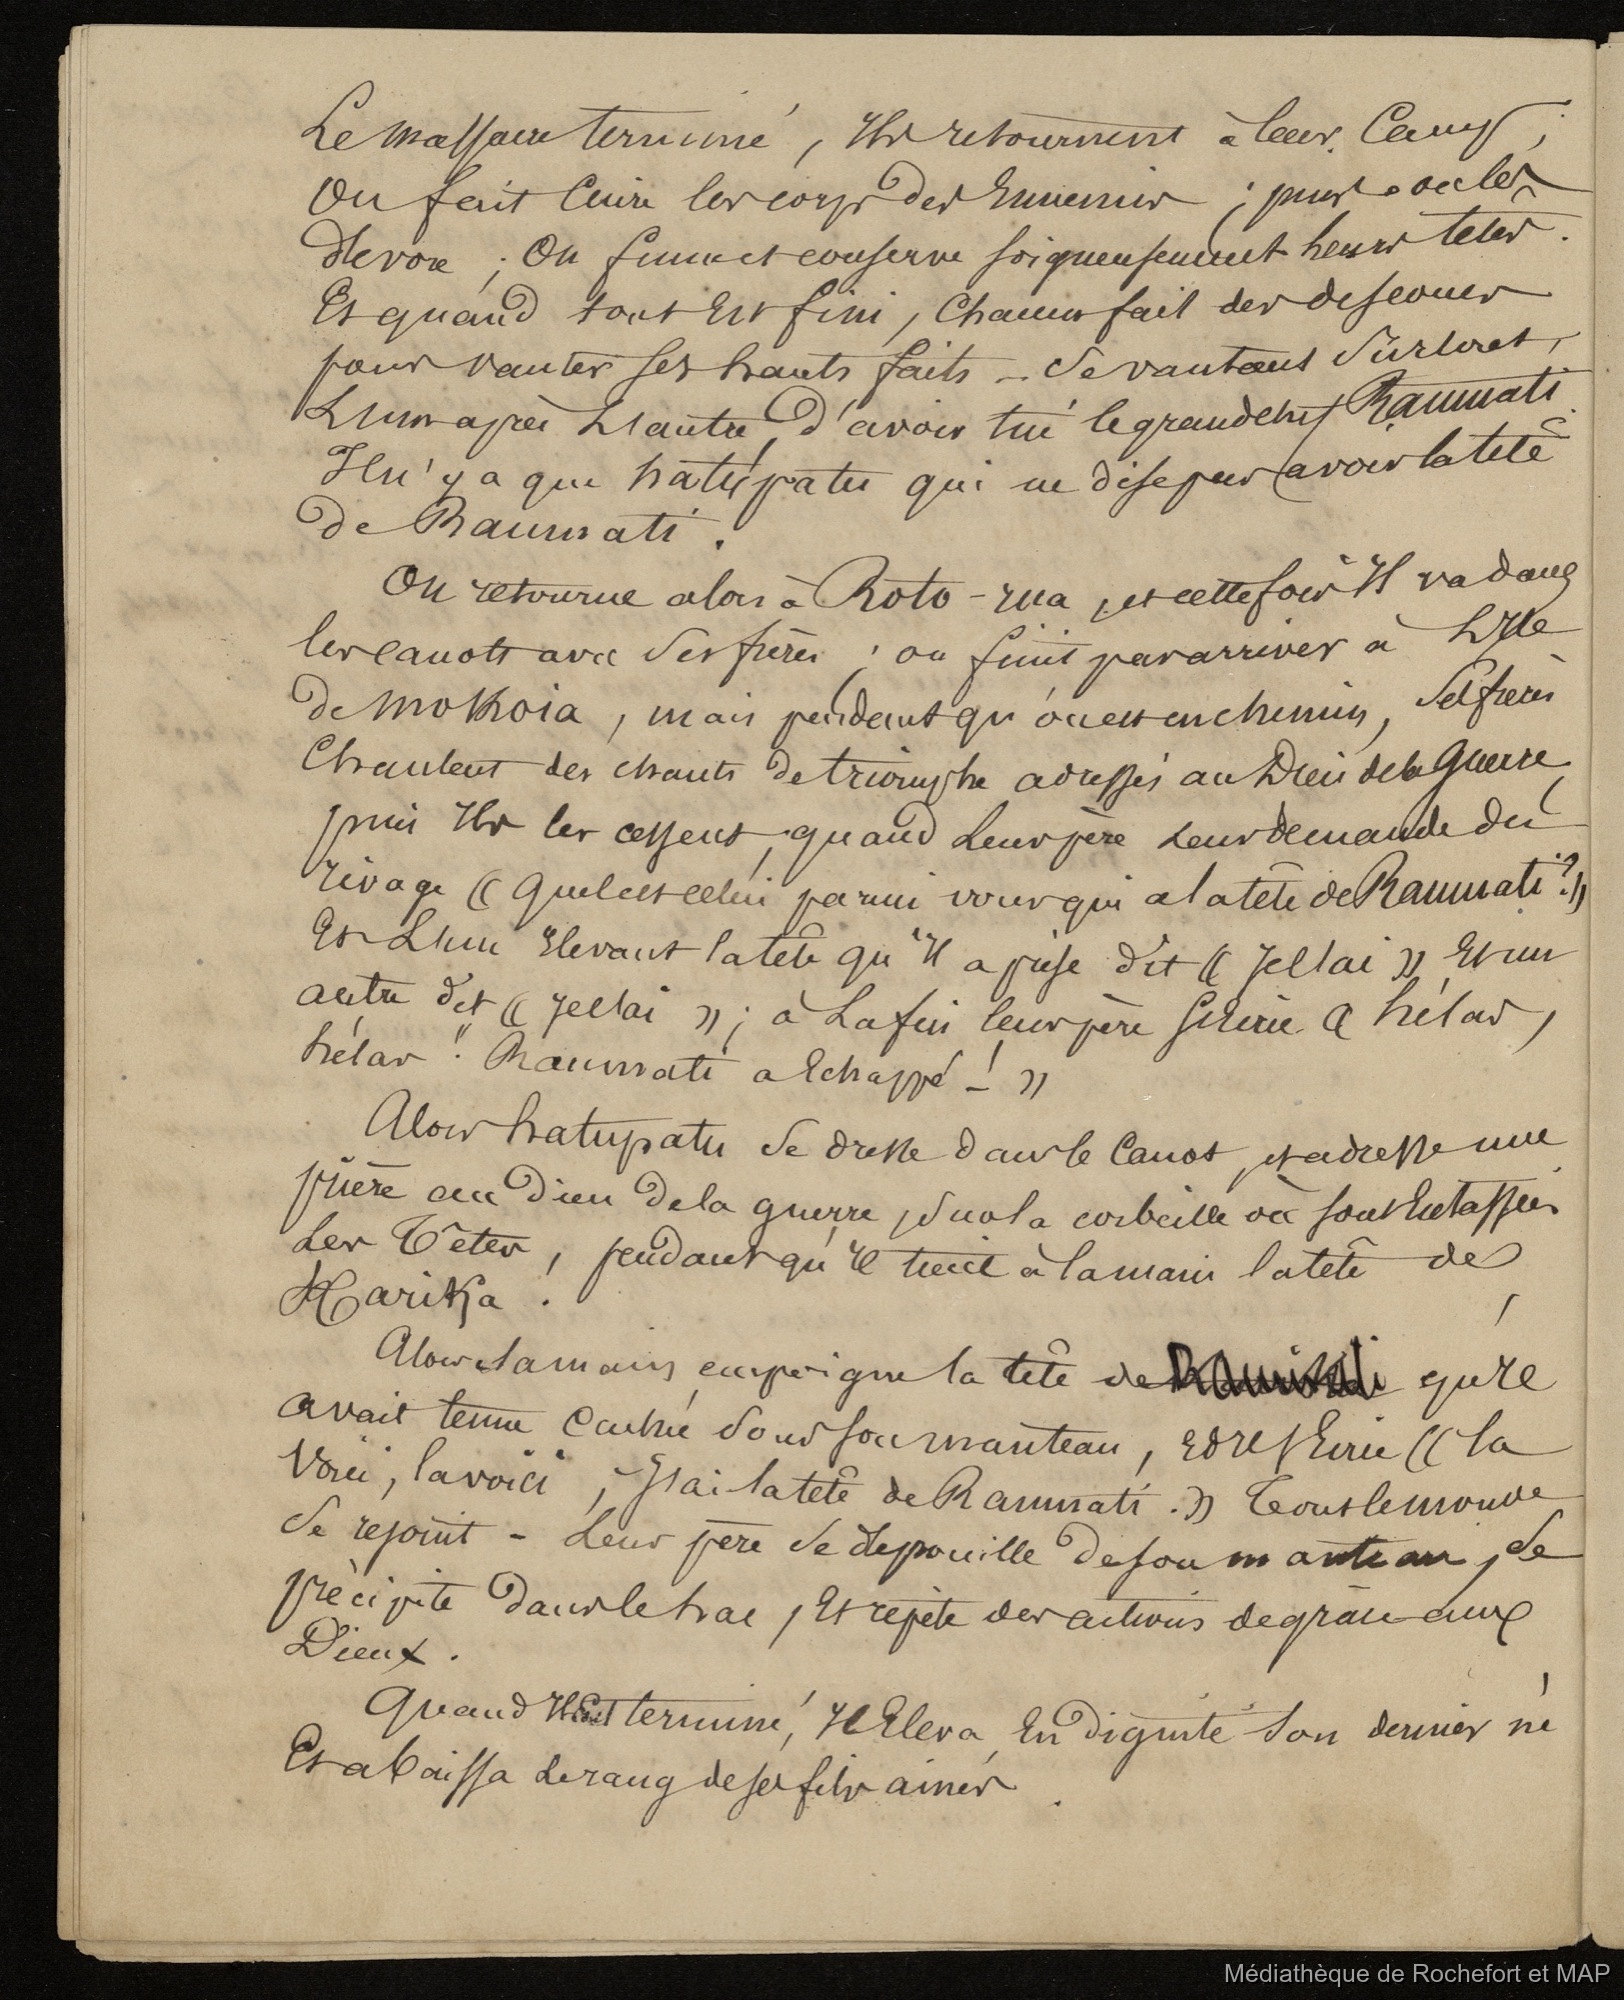 Le massacre terminé, Ils retournent à leur Camp ;
On fait Cuire les corps des Ennemis ; puis on les
dévore ; On fume et conserve soigneusement leurs têtes.
Et quand tout Est fini, Chacun fait des discours
pour vanter ses hauts faits – Se vantant surtout,
L'un après L'autre, d'avoir tué le grand chef Raumati
Il n'y a que hatupatu qui ne dise pas avoir la tête
de Raumati.
On retourne alors à Roto-rua, et cette fois Il va dans
les canots avec Ses frères ; on finit par arriver à L'Ile
de Mokoia, mais pendant qu'on est en chemin, Ses frères
Chantent des chants de triomphe adressés au Dieu de la Guerre,
puis Ils les cessent, quand Leur père Leur demande du
rivage « Quel est celui parmi vous qui a la tête de Raumati ? »
Et L'un Elevant la tête qu'Il a prise dit « Je l'ai » Et un
autre dit « Je l'ai » ; à La fin leur père S'Ecrie « hélas,
hélas ! Raumati a Echappé – ! »
Alors hatupatu Se dresse dans le Canot, et adresse une
prière au Dieu de la guerre, sur la corbeille où sont Entassées
Les Têtes, pendant qu'Il tient à la main la tête de
Karika.
Alors sa main empoigne la tête de Raumati qu'Il
avait tenue cachée sous son manteau, et s'Ecrie « la
voici, la voici, J'ai la tête de Raumati. » Tout le monde
Se réjouit – Leur père Se dépouille de son manteau, Se
précipite dans le Lac, Et répète des actions de grâce aux
Dieux.
Quand Il Eut terminé, Il Eleva En dignité Son dernier né
Et abaissa Le rang de ses fils ainés.
Médiathèque de Rochefort et MAP